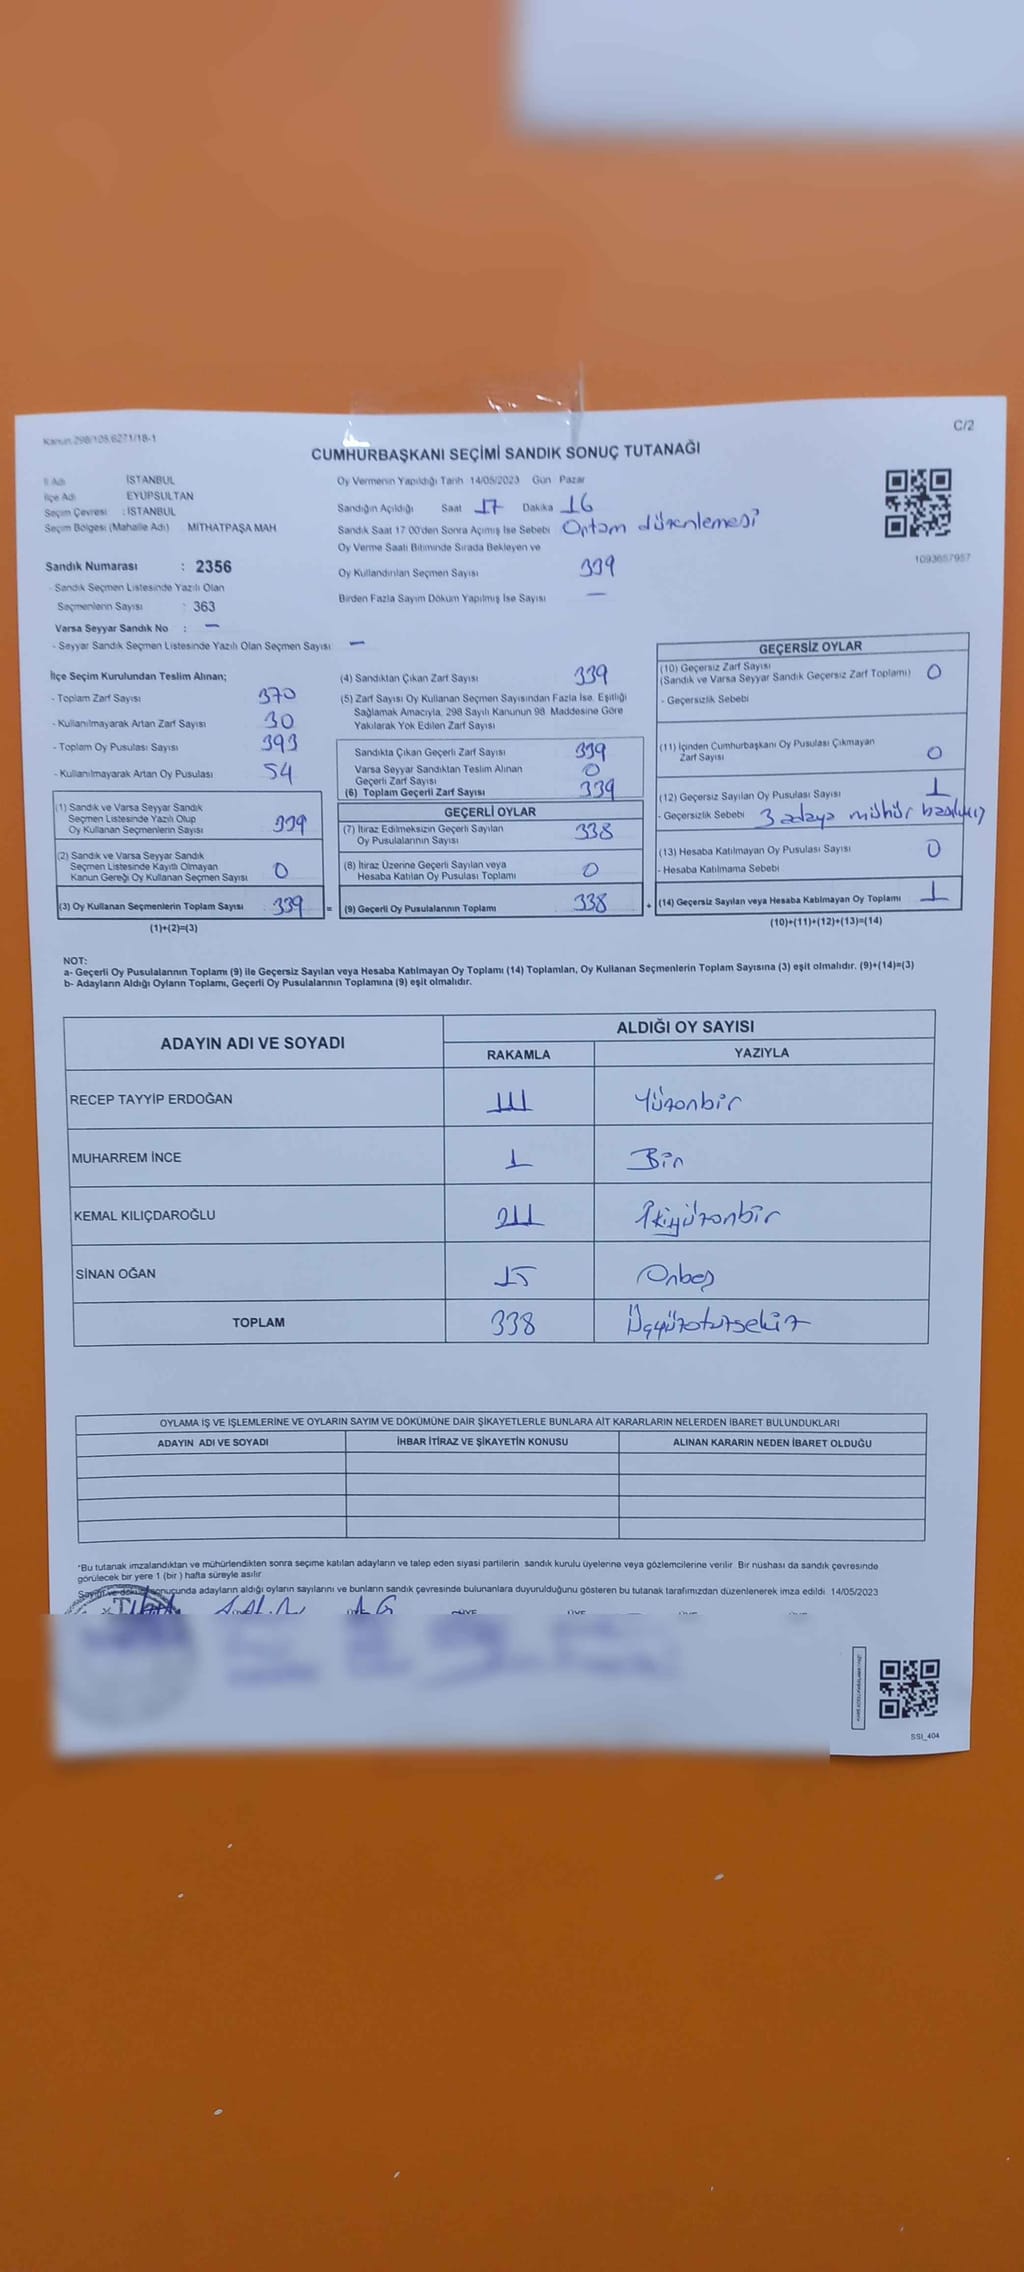 Kanun:298/105,6271/18-1
C/2
CUMHURBAŞKANI SEÇİMİ SANDIK SONUÇ TUTANAĞI
İl Adı İSTANBUL
İlçe Adı EYÜPSULTAN
Seçim Çevresi : İSTANBUL
Seçim Bölgesi (Mahalle Adı) MİTHATPAŞA MAH
Sandık Numarası : 2356
- Sandık Seçmen Listesinde Yazılı Olan
Seçmenlerin Sayısı : 363
Varsa Seyyar Sandık No : —
- Seyyar Sandık Seçmen Listesinde Yazılı Olan Seçmen Sayısı —
Oy Vermenin Yapıldığı Tarih 14/05/2023 Gün Pazar
Sandığın Açıldığı Saat 17 Dakika 16
Sandık Saat 17 00'den Sonra Açımış İse Sebebi Ortam düzenlemesi
Oy Verme Saati Bitiminde Sırada Bekleyen ve
Oy Kullandırılan Seçmen Sayısı 339
Birden Fazla Sayım Döküm Yapılmış İse Sayısı —
1093657957
İlçe Seçim Kurulundan Teslim Alınan;
- Toplam Zarf Sayısı 370
- Kullanılmayarak Artan Zarf Sayısı 30
- Toplam Oy Pusulası Sayısı 393
- Kullanılmayarak Artan Oy Pusulası 54
(1) Sandık ve Varsa Seyyar Sandık
Seçmen Listesinde Yazılı Olup
Oy Kullanan Seçmenlerin Sayısı 339
(2) Sandık ve Varsa Seyyar Sandık
Seçmen Listesinde Kayıtlı Olmayan
Kanun Gereği Oy Kullanan Seçmen Sayısı 0
(3) Oy Kullanan Seçmenlerin Toplam Sayısı 339 =
(1)+(2)=(3)
(4) Sandıktan Çıkan Zarf Sayısı 339
(5) Zarf Sayısı Oy Kullanan Seçmen Sayısından Fazla İse, Eşitliği
Sağlamak Amacıyla, 298 Sayılı Kanunun 98. Maddesine Göre
Yakılarak Yok Edilen Zarf Sayısı
Sandıkta Çıkan Geçerli Zarf Sayısı 339
Varsa Seyyar Sandıktan Teslim Alınan
Geçerli Zarf Sayısı 0
(6) Toplam Geçerli Zarf Sayısı 339
GEÇERLİ OYLAR
(7) İtiraz Edilmeksizin Geçerli Sayılan
Oy Pusulalarının Sayısı 338
(8) İtiraz Üzerine Geçerli Sayılan veya
Hesaba Katılan Oy Pusulası Toplamı 0
(9) Geçerli Oy Pusulalarının Toplamı 338 +
GEÇERSİZ OYLAR
(10) Geçersiz Zarf Sayısı
(Sandık ve Varsa Seyyar Sandık Geçersiz Zarf Toplamı) 0
- Geçersizlik Sebebi
(11) İçinden Cumhurbaşkanı Oy Pusulası Çıkmayan
Zarf Sayısı 0
(12) Geçersiz Sayılan Oy Pusulası Sayısı 1
- Geçersizlik Sebebi 3 adaya mühür basılmış
(13) Hesaba Katılmayan Oy Pusulası Sayısı 0
- Hesaba Katılmama Sebebi
(14) Geçersiz Sayılan veya Hesaba Katılmayan Oy Toplamı 1
(10)+(11)+(12)+(13)=(14)
NOT:
a- Geçerli Oy Pusulalarının Toplamı (9) ile Geçersiz Sayılan veya Hesaba Katılmayan Oy Toplamı (14) Toplamları, Oy Kullanan Seçmenlerin Toplam Sayısına (3) eşit olmalıdır. (9)+(14)=(3)
b- Adayların Aldığı Oyların Toplamı, Geçerli Oy Pusulalarının Toplamına (9) eşit olmalıdır.
ADAYIN ADI VE SOYADI ALDIĞI OY SAYISI
RAKAMLA YAZIYLA
RECEP TAYYİP ERDOĞAN 111 Yüzonbir
MUHARREM İNCE 1 Bir
KEMAL KILIÇDAROĞLU 211 İkiyüzonbir
SİNAN OĞAN 15 Onbeş
TOPLAM 338 Üçyüzotuzsekiz
OYLAMA İŞ VE İŞLEMLERİNE VE OYLARIN SAYIM VE DÖKÜMÜNE DAİR ŞİKAYETLERLE BUNLARA AİT KARARLARIN NELERDEN İBARET BULUNDUKLARI
ADAYIN ADI VE SOYADI İHBAR İTİRAZ VE ŞİKAYETİN KONUSU ALINAN KARARIN NEDEN İBARET OLDUĞU
*Bu tutanak imzalandıktan ve mühürlendikten sonra seçime katılan adayların ve talep eden siyasi partilerin sandık kurulu üyelerine veya gözlemcilerine verilir. Bir nüshası da sandık çevresinde
görülecek bir yere 1 (bir ) hafta süreyle asılır.
Sayım ve döküm sonucunda adayların aldığı oyların sayılarını ve bunların sandık çevresinde bulunanlara duyurulduğunu gösteren bu tutanak tarafımızdan düzenlenerek imza edildi. 14/05/2023
SSI_404